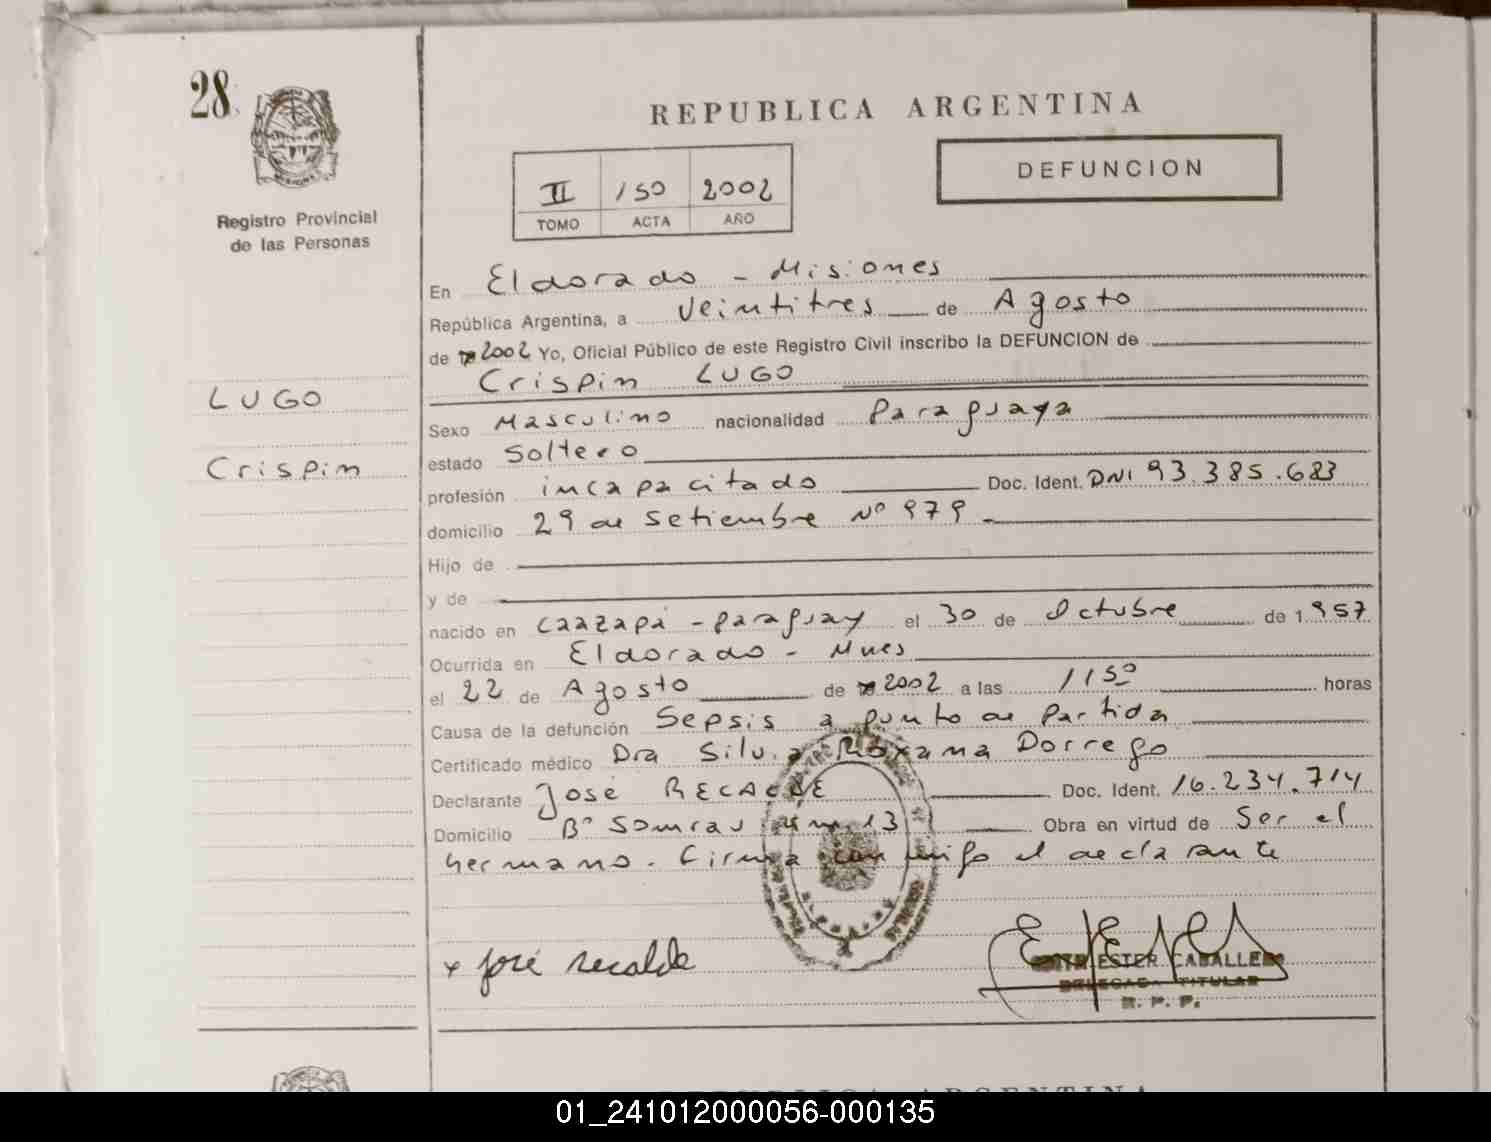 28
REPUBLICA ARGENTINA
DEFUNCION
II 150 2002
TOMO ACTA AÑO
Registro Provincial
de las Personas
En Eldorado - Misiones
República Argentina, a veintitres de Agosto
de 2002 Yo, Oficial Público de este Registro Civil inscribo la DEFUNCION de
Crispin LUGO
LUGO
Crispin
Sexo Masculino nacionalidad Paraguaya
estado Soltero
profesión incapacitado Doc. Ident. DNI 93.385.683
domicilio 29 de Setiembre Nº 979
Hijo de
y de
nacido en Caazapá - Paraguay el 30 de Octubre de 1957
Ocurrida en Eldorado - Mnes
el 22 de Agosto de 2002 a las 1150 horas
Causa de la defunción Sepsis a punto de Partida
Certificado médico Dra Silvia Roxana Dorrego
Declarante José RECALDE Doc. Ident. 16.234.714
Domicilio Bº 13 Obra en virtud de Ser el
hermano. Firma conmigo el declarante
x José Recalde
ESTER CABALLERO
DELEGADA TITULAR
R. P. P.
REPUBLICA ARGENTINA
01_241012000056-000135